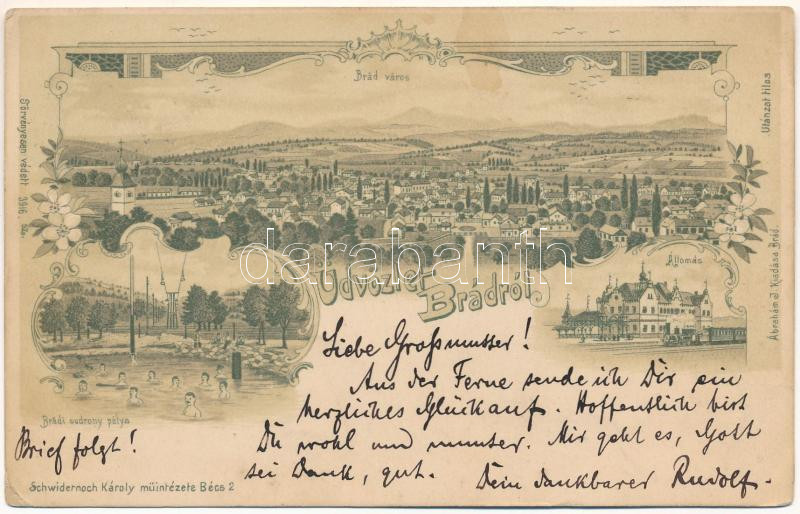 Brád város
Törvényesen védett 3916 sz.
Utánzat tilos
Ábrahám J. Kiadása Brád.
Állomás
Üdvözlet Brádról
darabanth
Liebe Großmutter!
Aus der Ferne sende ich Dir ein
herzliches Glückauf. Hoffentlich bist
Du wohl und munter. Mir geht es, Gott
sei Dank, gut. Dein dankbarer Rudolf.
Brádi sodrony pálya
Brief folgt!
Schwidernoch Károly műintézete Bécs 2